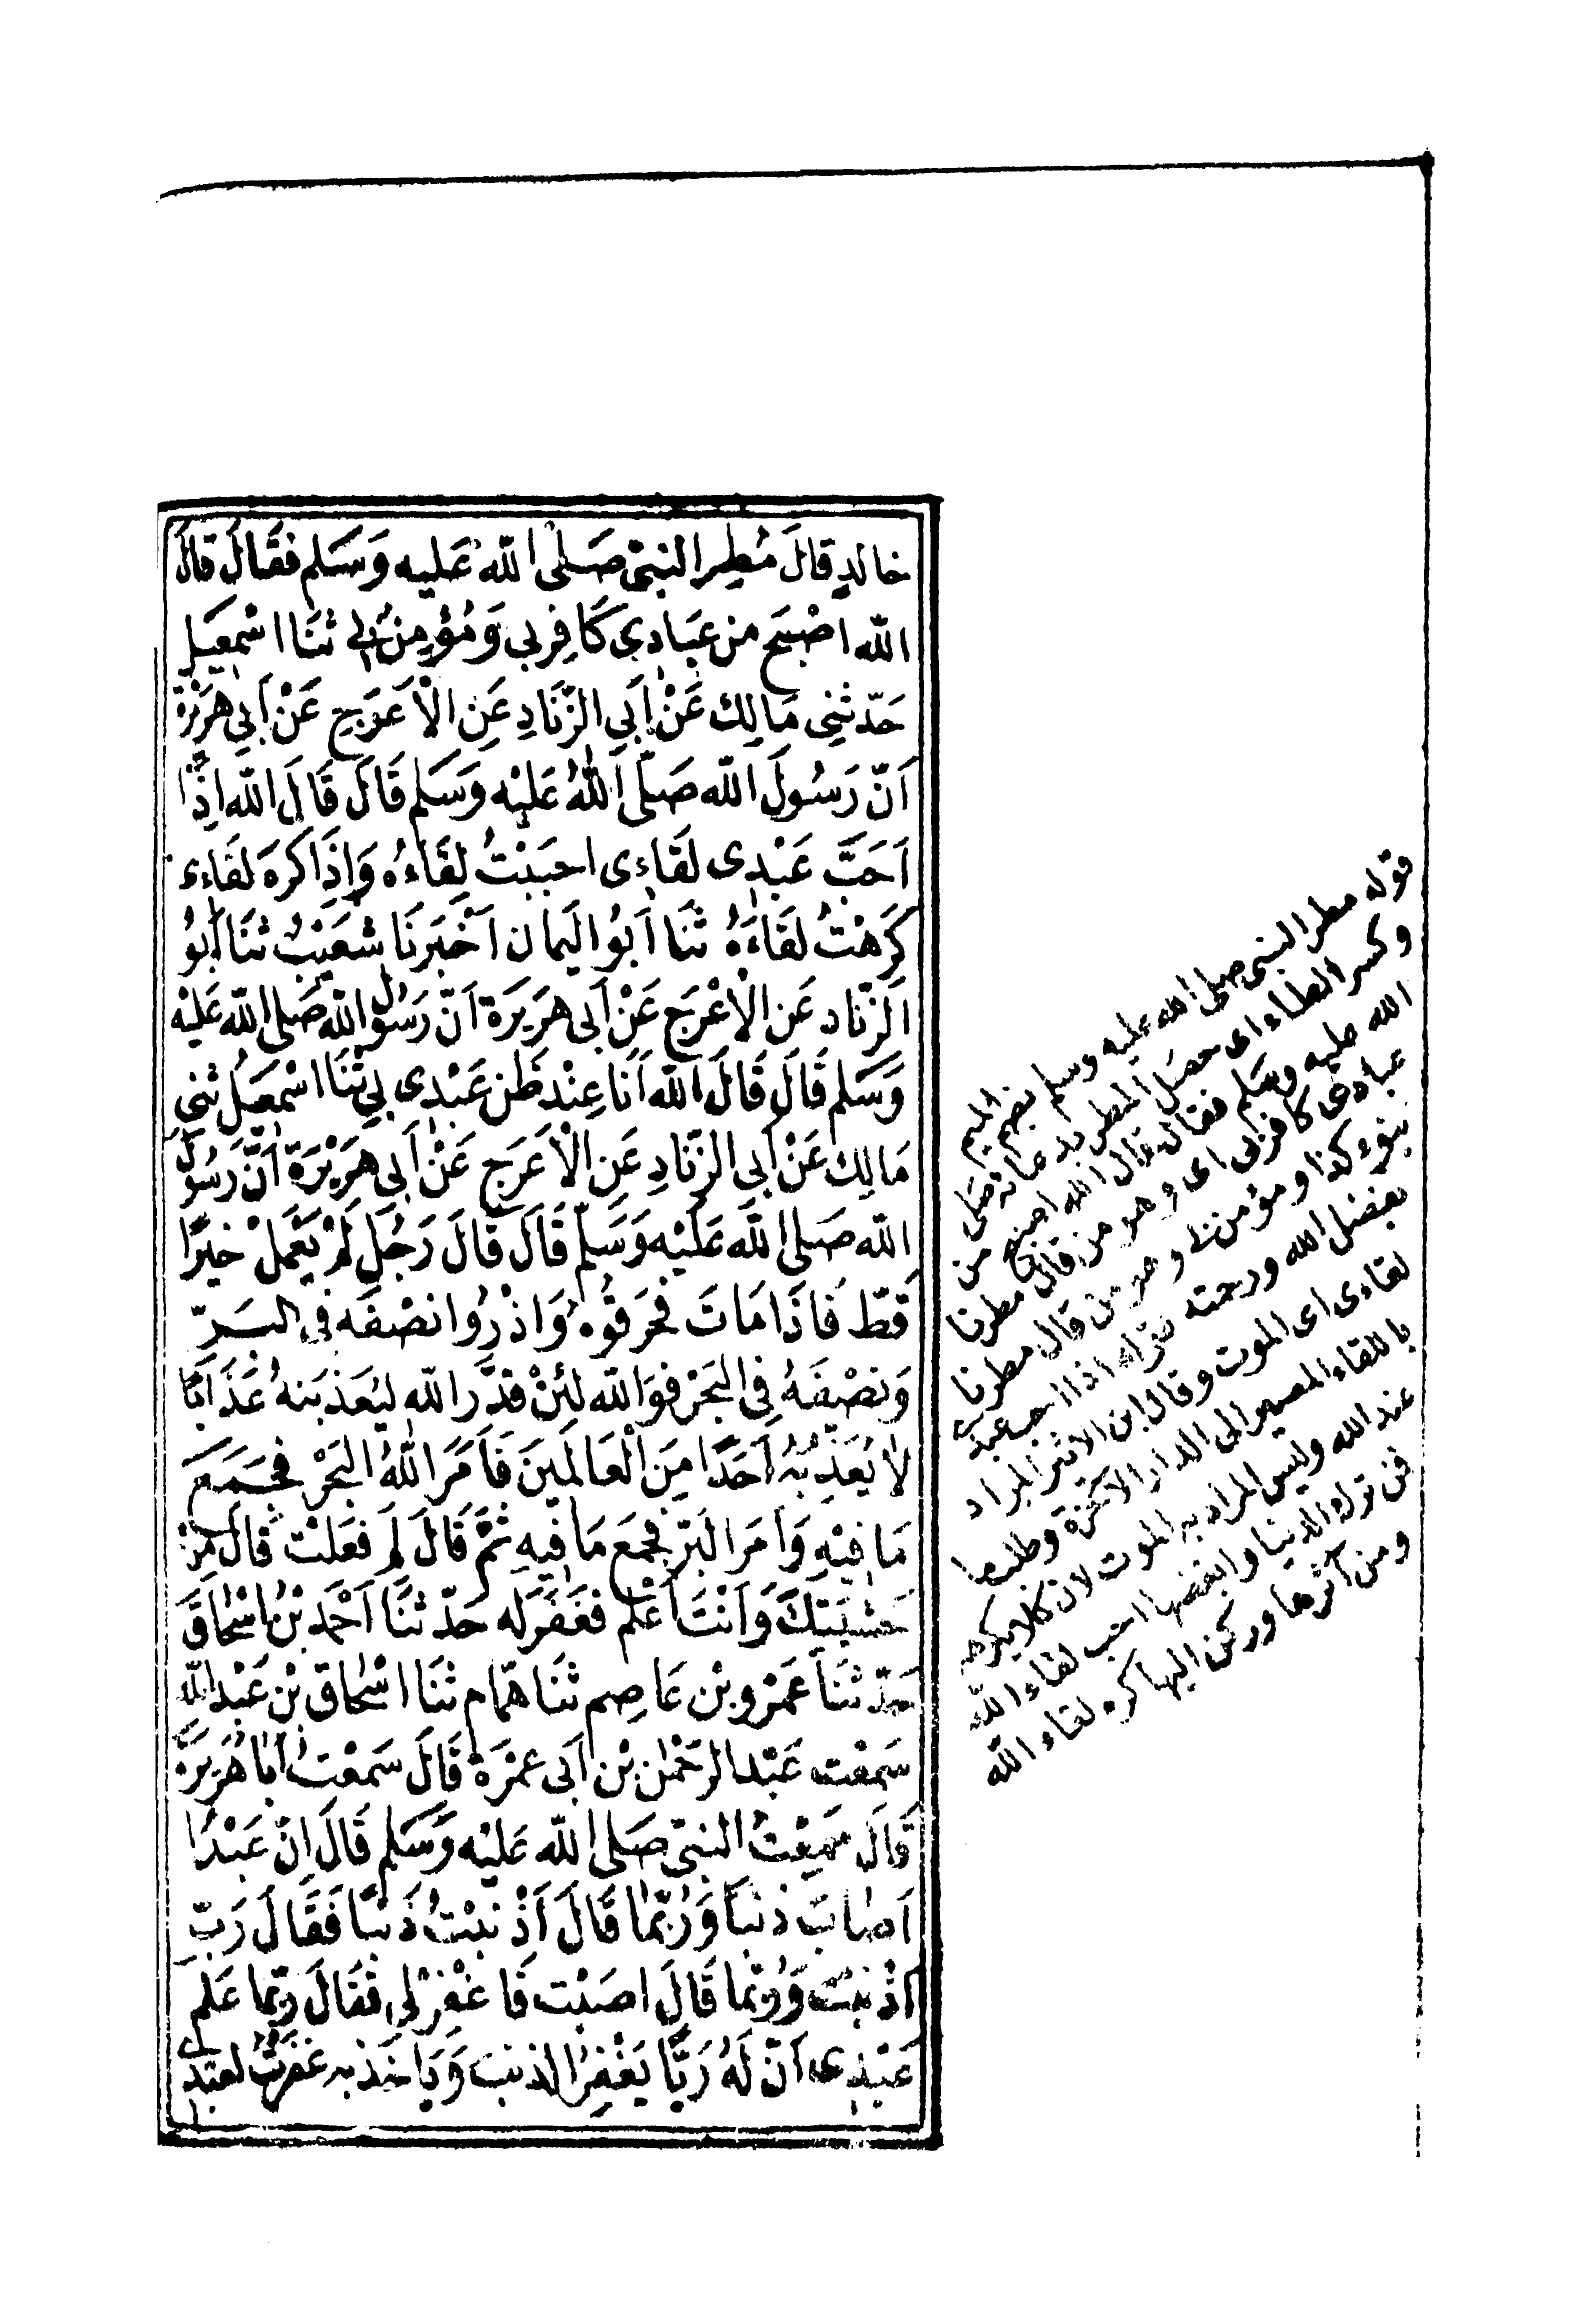 خالدٍ قالَ مُطِر النبىّ صَلى الله عَليه وَسَلم فقَالَ قالَ
الله اصْبَح من عِبَادِي كَافِر بي وَمُؤمِنٌ بي ثنَا اسْمٰعِيل
حَدّثنِى مَالِك عَنْ اَبِي الزّنَادِ عَنِ الْاَعْرَج عَنْ اَبِي هرَيْرَة
اَنّ رَسُولَ الله صَلّى اللهُ عَليْه وَسَلم قَالَ قَالَ الله اِذَا
اَحَبَّ عَبْدِى لقَاءِى احبَبْتُ لِقَاءُه وَاِذَا كرَه لقَاءِى
كَرِهْتُ لقَاءَهُ ثنَا اَبُو اليَمان اَخْبَرنَا شعَيْبٌ ثنَا اَبُو
الزّناد عَن الْاَعْرَج عَنْ اَبى هرَيرَة اَنّ رَسُول الله صَلى الله عَليْه
وَسَلم قَالَ قَالَ الله اَنَا عِنْد ظَن عَبْدِى بِي ثنَا اسْمٰعيلُ ثنِي
مَالِك عَنْ اَبى الزّنَادِ عَنِ الْاَعْرَج عَنْ اَبِى هرَيْرَةَ اَنَّ رَسُول
الله صَلى الله عَليْه وَسَلّم قَالَ قالَ رَجُل لَمْ يَعْمل خيرًا
قَطّ فَاذَا مَاتَ فحَرقُوه وَاذْرُوا نصْفَه فِى البَرّ
وَنصْفَهُ فِى البَحْر فوَالله لئِنْ قدَرَ الله ليُعَذبَنهُ عَذَابًا
لا يُعَذّبُهُ اَحَدًا مِنَ الْعَالَمينَ فَاَمَرَ اللهُ البَحْر فجَمَعَ
مَا فيْهِ وَاَمَرَ البَرّ فجمعَ مَا فِيهِ ثمّ قَالَ لمَ فعَلتَ قالَ مِنْ
خشيَتِكَ وَاَنْتَ اَعْلم فغَفَرَ له حَدّثنَا اَحْمد بْنُ اسْحٰاقَ
حَدّثنَا عَمْرُو بْن عَاصِم ثنَا هَمّام ثنَا اسْحٰاق بْن عَبْد الله
سَمعْت عَبْد الرّحْمٰن بْن اَبى عمْرَة قَالَ سَمعْتُ اَبَا هُرَيرَة
قَالَ سَمِعْتُ النبىّ صَلى الله عَليْه وَسَلم قَالَ اِنّ عَبْدًا
اَصَابَ ذنبًا وَرُبّمٰا قَالَ اَذْنبَ ذَنبًا فَقَالَ رَبِّ
اَذْنبْتُ وَرُبّمٰا قَالَ اصَبْت فَاغْفِرْ لى فَقَالَ ربّهُ اعَلم
عَبْدِى اَنّ لَهُ رَبًّا يَغْفِرُ الذنب وَيَاخذ به غفرتُ لعبْدى
قوله مطر النبى صلى الله عليه وسلم بضم الميم
وكسر الطاء اى حصل المطر بدعائه صلى
الله عليه وسلم فقال قال الله اصبح من
عبادى كافر بى اى وهو من قال مطرنا
بنوء كذا ومؤمن بى وهو من قال مطرنا
بفضل الله ورحمته قوله اذا احب عبدى
لقاءى اى الموت وقال ابن الاثير المراد
باللقاء المصير الى الدار الآخرة وطلب ما
عند الله وليس المراد به الموت لان كلا يكرهه
فمن ترك الدنيا وابغضها احب لقاء الله
ومن آثرها وركن اليها كره لقاء الله